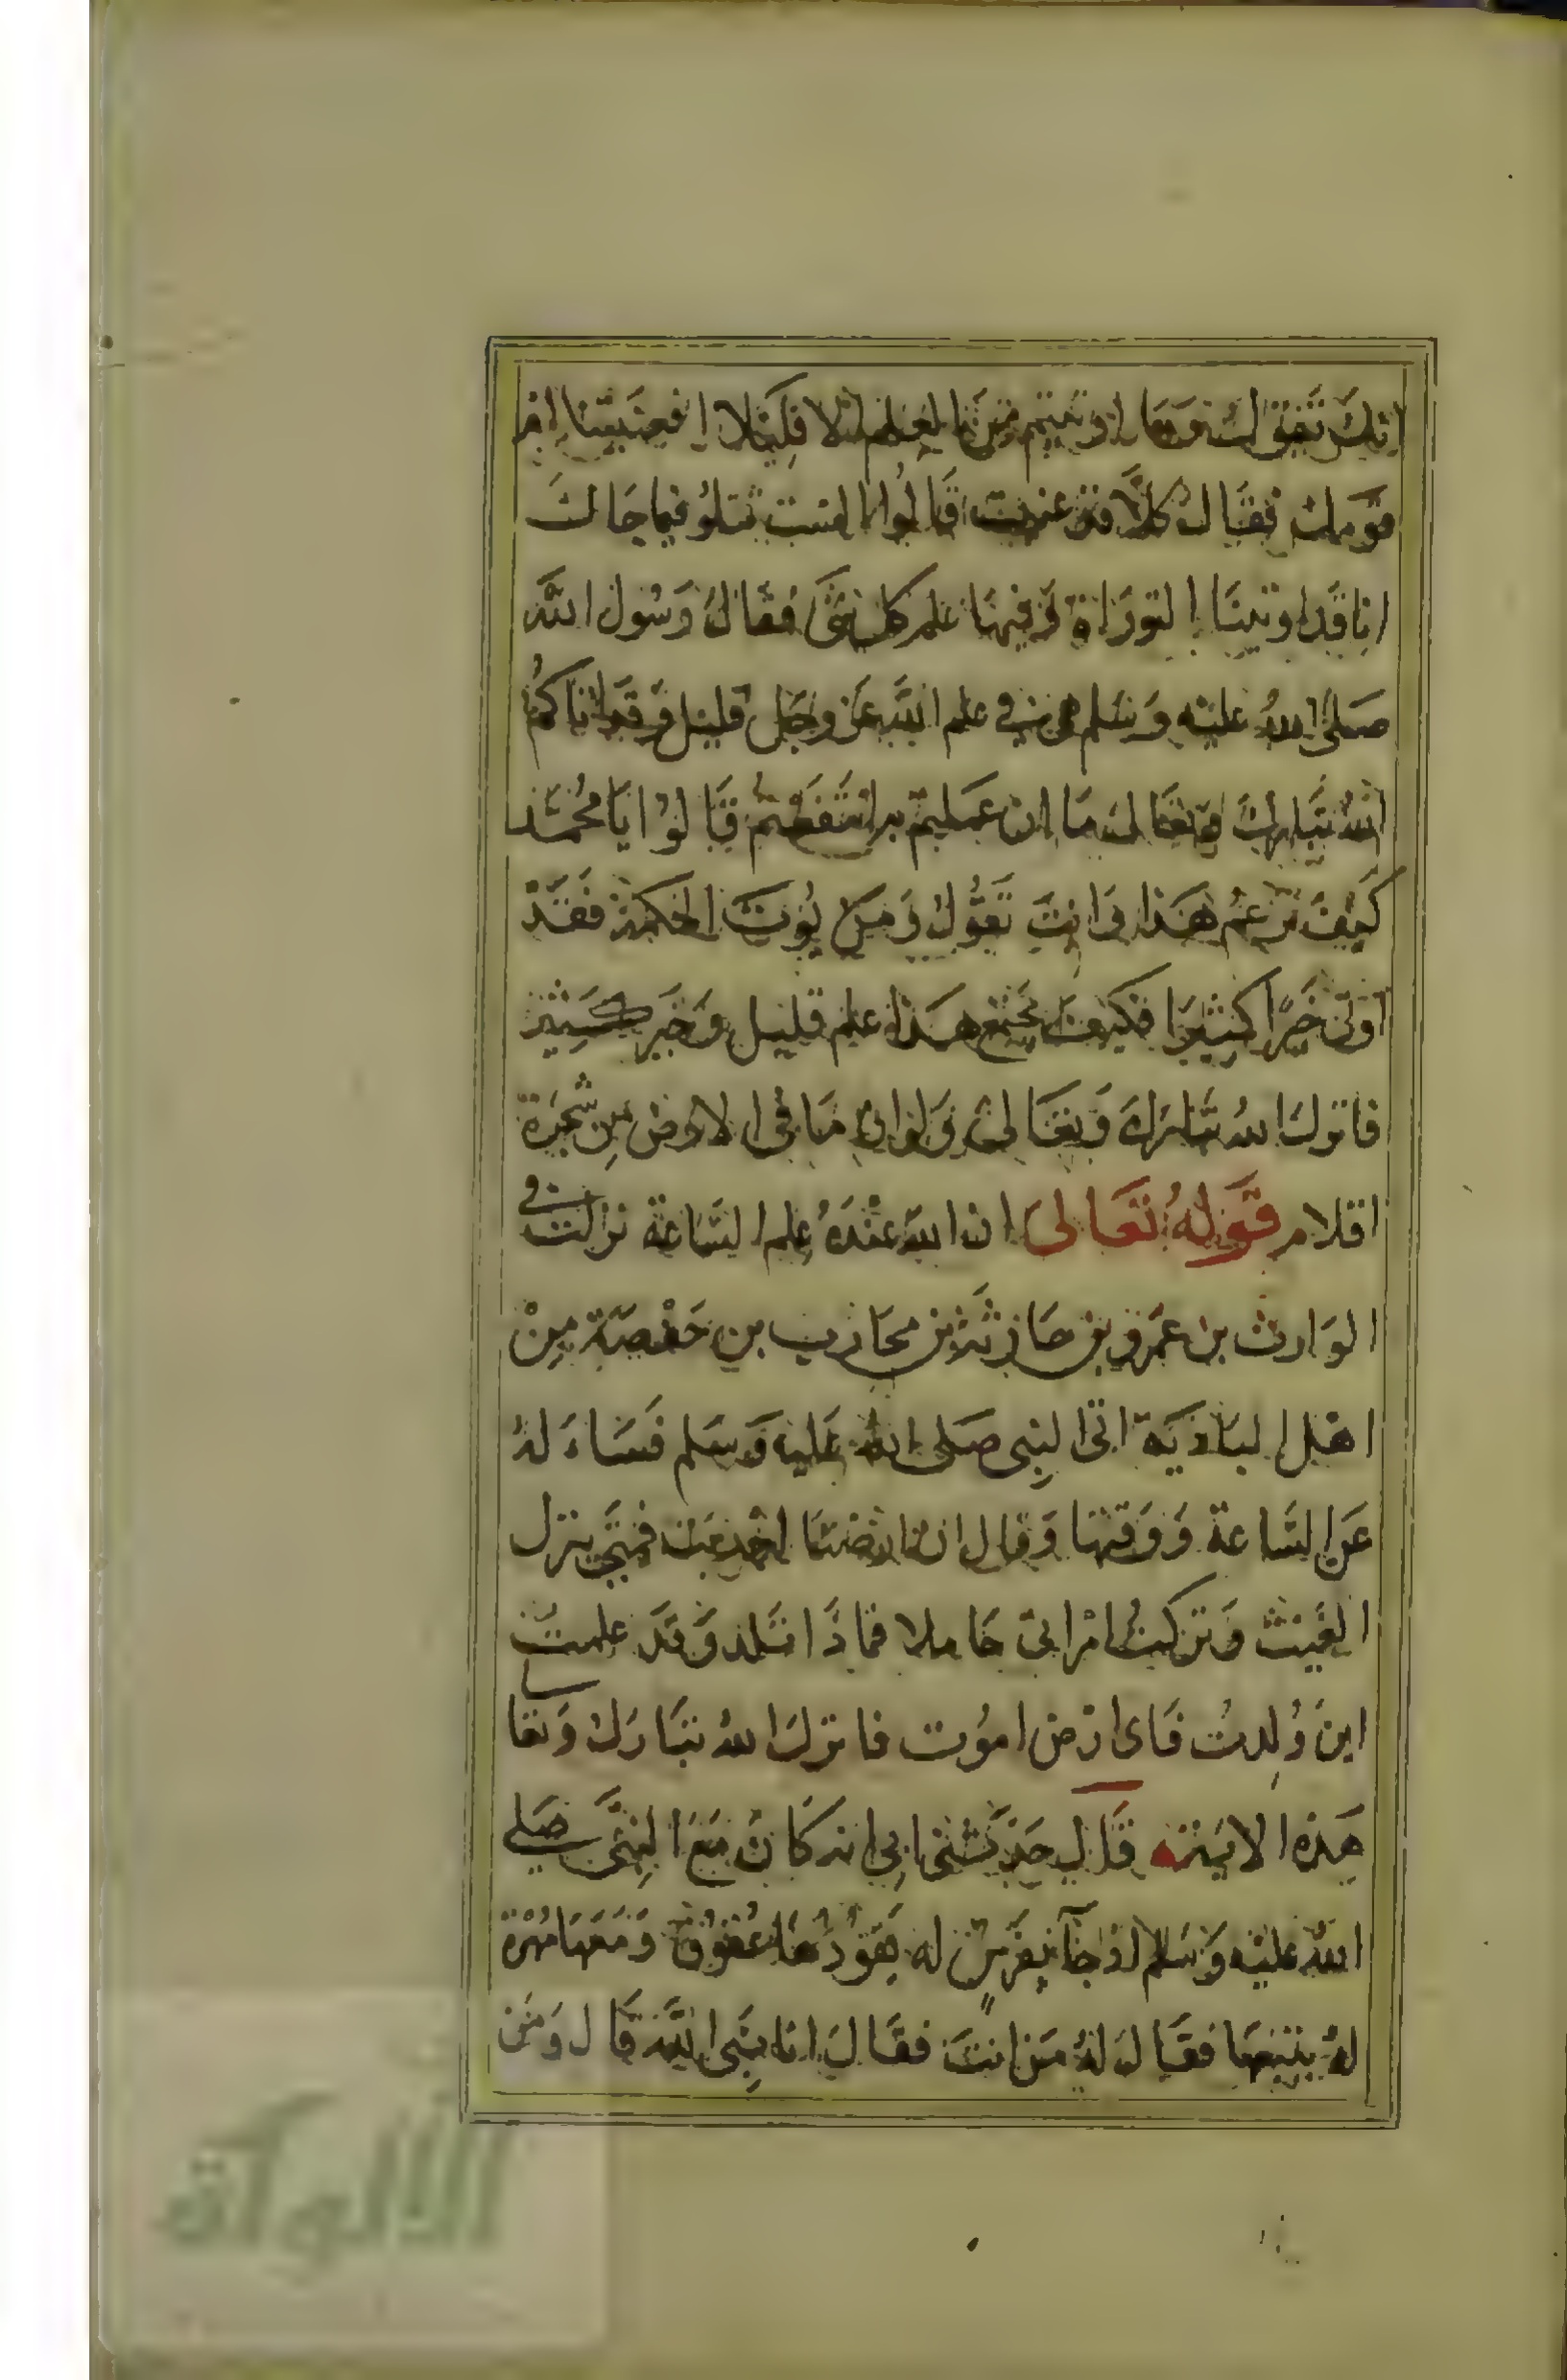 انك تقول وما اوتيتم من العلم الا قليلا افعنيتنا ام
قومك فقال كلا قد عنيت قالوا الست تتلو فيما جاك
انا قد اوتينا التوراة وفيها علم كل شى فقال رسول الله
صلى الله عليه وسلم هي في علم الله عز وجل قليل وقد اتاكم
الله تبارك وتعالى ما ان عملتم به انتفعتم قالوا يا محمد
كيف تزعم هذا وانت تقول ومن يوت الحكمة فقد
اوتى خيرا كثيرا فكيف يجتمع هذا علم قليل وخير كثير
فانزل الله تبارك وتعالى ولو ان ما فى الارض من شجرة
اقلام قوله تعالى ان الله عنده علم الساعة نزلت في
الوارث بن عمرو بن حارثة بن محارب بن حفصة من
اهل البادية اتى النبى صلى الله عليه وسلم فساءله
عن الساعة ووقتها وقال ان ارضنا اجدبت فمتى ينزل
الغيث وتركت امراتى حاملا فماذا تلد وقد علمت
اين ولدت فباى ارض اموت فانزل الله تبارك وتعالى
هذه الاية قال حدثنى ابي انه كان مع النبى صلى
الله عليه وسلم اذ جآ بفرس له يقودها عقوق ومعها مهرة
له يتبعها فقال له من انت فقال انا نبى الله قال ومن
الألوكة